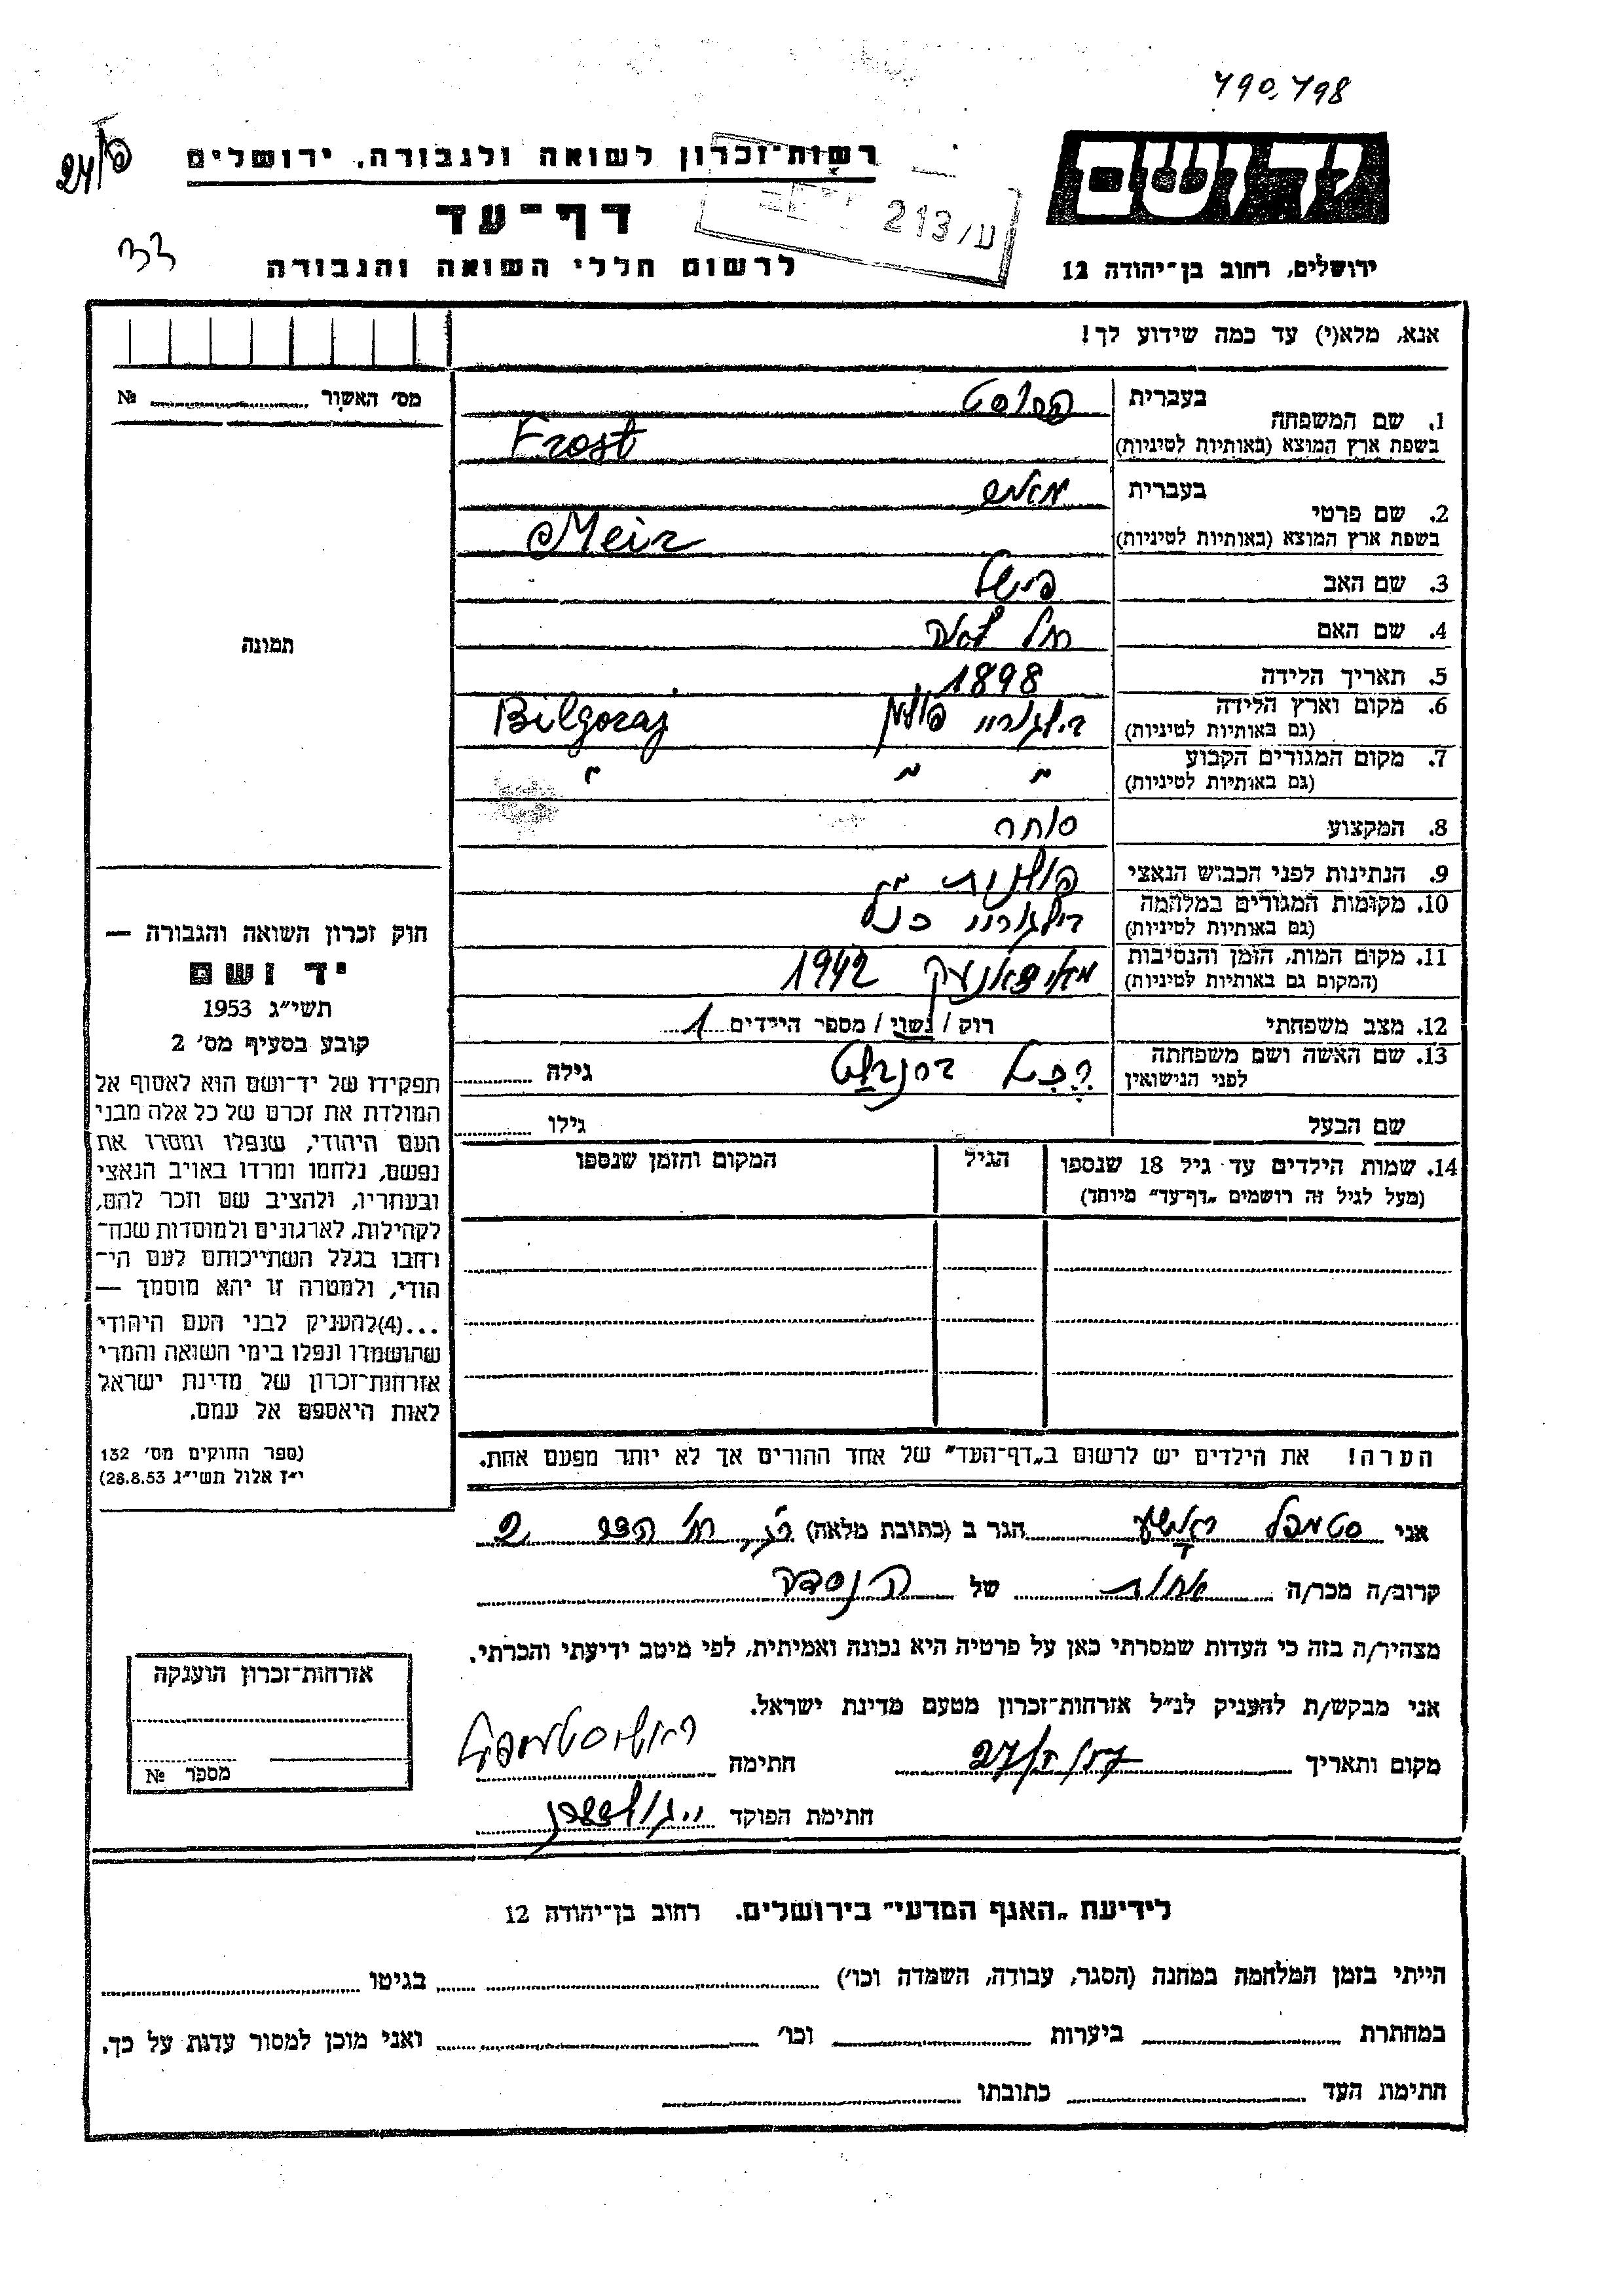 490,498
רשות־זכרון לשואה ולגבורה, ירושלים
דף־עד
לרשום חללי השואה והגבורה
213/ע
יד ושם
ירושלים, רחוב בן־יהודה 12
אנא, מלא(י) עד כמה שידוע לך!
מס' האשור № 
תמונה
1. שם המשפחה
בעברית
בשפת ארץ המוצא (באותיות לטיניות) Frost
2. שם פרטי
בעברית מאיר
בשפת ארץ המוצא (באותיות לטיניות) Meir
3. שם האב פישל
4. שם האם
5. תאריך הלידה 1898
6. מקום וארץ הלידה בילגוריי פולין Bilgoraj
(גם באותיות לטיניות)
7. מקום המגורים הקבוע " " "
(גם באותיות לטיניות)
8. המקצוע סוחר
9. הנתינות לפני הכבוש הנאצי פולנית
10. מקומות המגורים במלחמה בילגוריי כנ"ל
(גם באותיות לטיניות)
11. מקום המות, הזמן והנסיבות מאידאנעק 1942
(המקום גם באותיות לטיניות)
12. מצב משפחתי רוק / נשוי / מספר הילדים 1
13. שם האשה ושם משפחתה גילה
לפני הנישואין
שם הבעל גילו
14. שמות הילדים עד גיל 18 שנספו הגיל המקום והזמן שנספו
(מעל לגיל זה רושמים „דף־עד" מיוחד)
הערה! את הילדים יש לרשום ב„דף־העד" של אחד ההורים אך לא יותר מפעם אחת.
חוק זכרון השואה והגבורה —
יד ושם
תשי"ג 1953
קובע בסעיף מס' 2
תפקידו של יד־ושם הוא לאסוף אל
המולדת את זכרם של כל אלה מבני
העם היהודי, שנפלו ומסרו את
נפשם, נלחמו ומרדו באויב הנאצי
ובעוזריו, ולהציב שם וזכר להם,
לקהילות, לארגונים ולמוסדות שנח־
רחבו בגלל השתייכותם לעם הי־
הודי, ולמטרה זו יהא מוסמך —
...(4) להעניק לבני העם היהודי
שהושמדו ונפלו בימי השואה והמרי
אזרחות־זכרון של מדינת ישראל
לאות היאספם אל עמם.
(ספר החוקים מס' 132
י"ז אלול תשי"ג 28.8.53)
אני סטמפל הגר ב (כתובת מלאה)
קרוב/ה מכר/ה אחות של הנספה
מצהיר/ה בזה כי העדות שמסרתי כאן על פרטיה היא נכונה ואמיתית, לפי מיטב ידיעתי והכרתי.
אני מבקש/ת להעניק לנ"ל אזרחות־זכרון מטעם מדינת ישראל.
מקום ותאריך חתימה
חתימת הפוקד
אזרחות־זכרון הוענקה
מספר №
לידיעת „האגף המדעי" בירושלים. רחוב בן־יהודה 12
הייתי בזמן המלחמה במחנה (הסגר, עבודה, השמדה וכו') בגיטו
במחתרת ביערות וכו' ואני מוכן למסור עדות על כך.
חתימת העד כתובתו